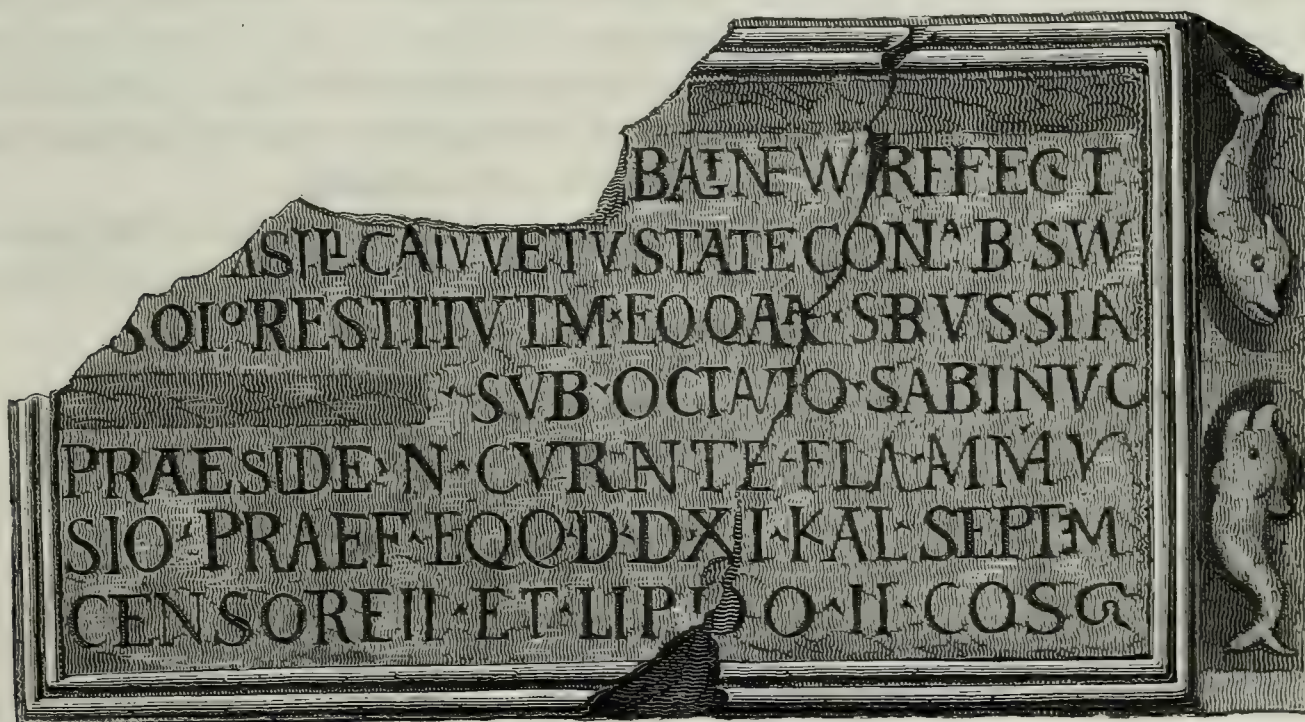 BALNEVM REFECT
ASILICAM VETVSTATE CONLABSVM
SOLO RESTITVTVM EQQ ALAE SEBVSSIA
SVB OCTAVIO SABINO V C
PRAESIDE N CVRANTE FLA AMMAV
SIO PRAEF EQQ D D XI KAL SEPTEM
CENSORE II ET LEPIDO II COS